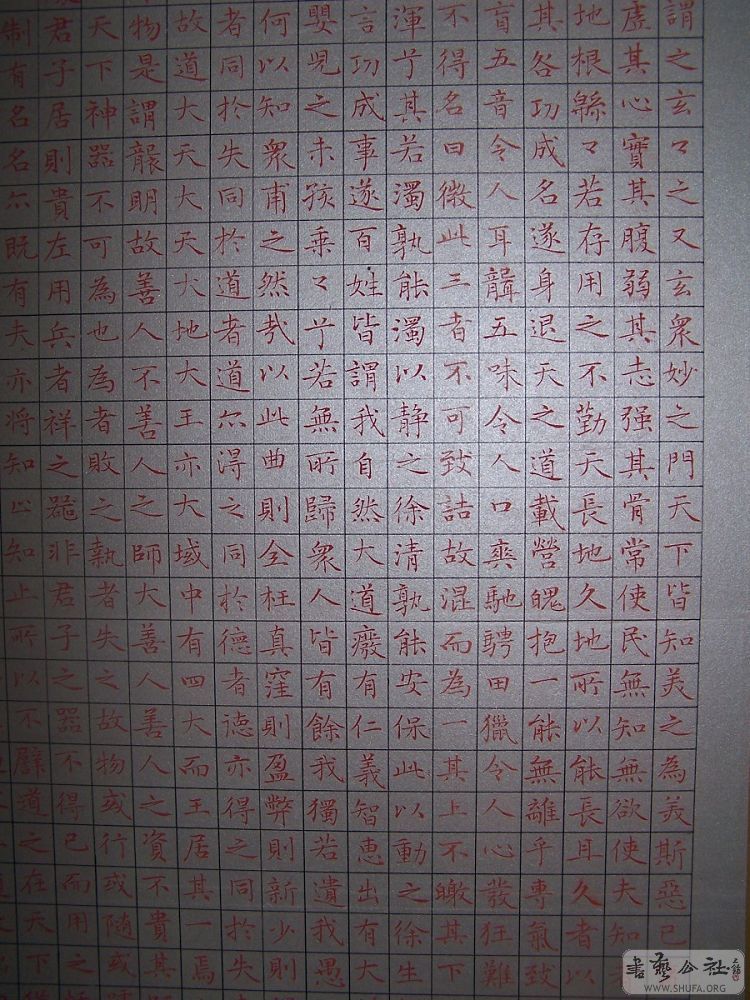 謂之玄々之又玄衆妙之門天下皆知美之為美斯惡已
虛其心實其腹弱其志强其骨常使民無知無欲使夫知
地根緜々若存用之不勤天長地久地所以能長且久者以
其各功成名遂身退天之道載營魄抱一能無離乎專氣致
盲五音令人耳聾五味令人口爽馳騁田獵令人心發狂難
不得名曰微此三者不可致詰故混而為一其上不皦其下
渾兮其若濁孰能濁以静之徐清孰能安保此以動之徐生
言功成事遂百姓皆謂我自然大道廢有仁義智惠出有大
嬰兒之未孩乘々兮若無所歸衆人皆有餘我獨若遺我愚
何以知衆甫之然哉以此曲則全枉真窪則盈弊則新少則
者同於失同於道者道亦得之同於德者德亦得之同於失
故道大天大天大地大王亦大域中有四大而王居其一焉
物是謂襲明故善人不善人之師大善人善人之資不貴其
天下神器不可為也為者敗之執者失之故物或行或隨或
君子居則貴左用兵者祥之器非君子之器不得已而用之
制有名名亦既有夫亦將知止知止所以不譬道之在天下
書藝公社
WWW.SHUFA.ORG